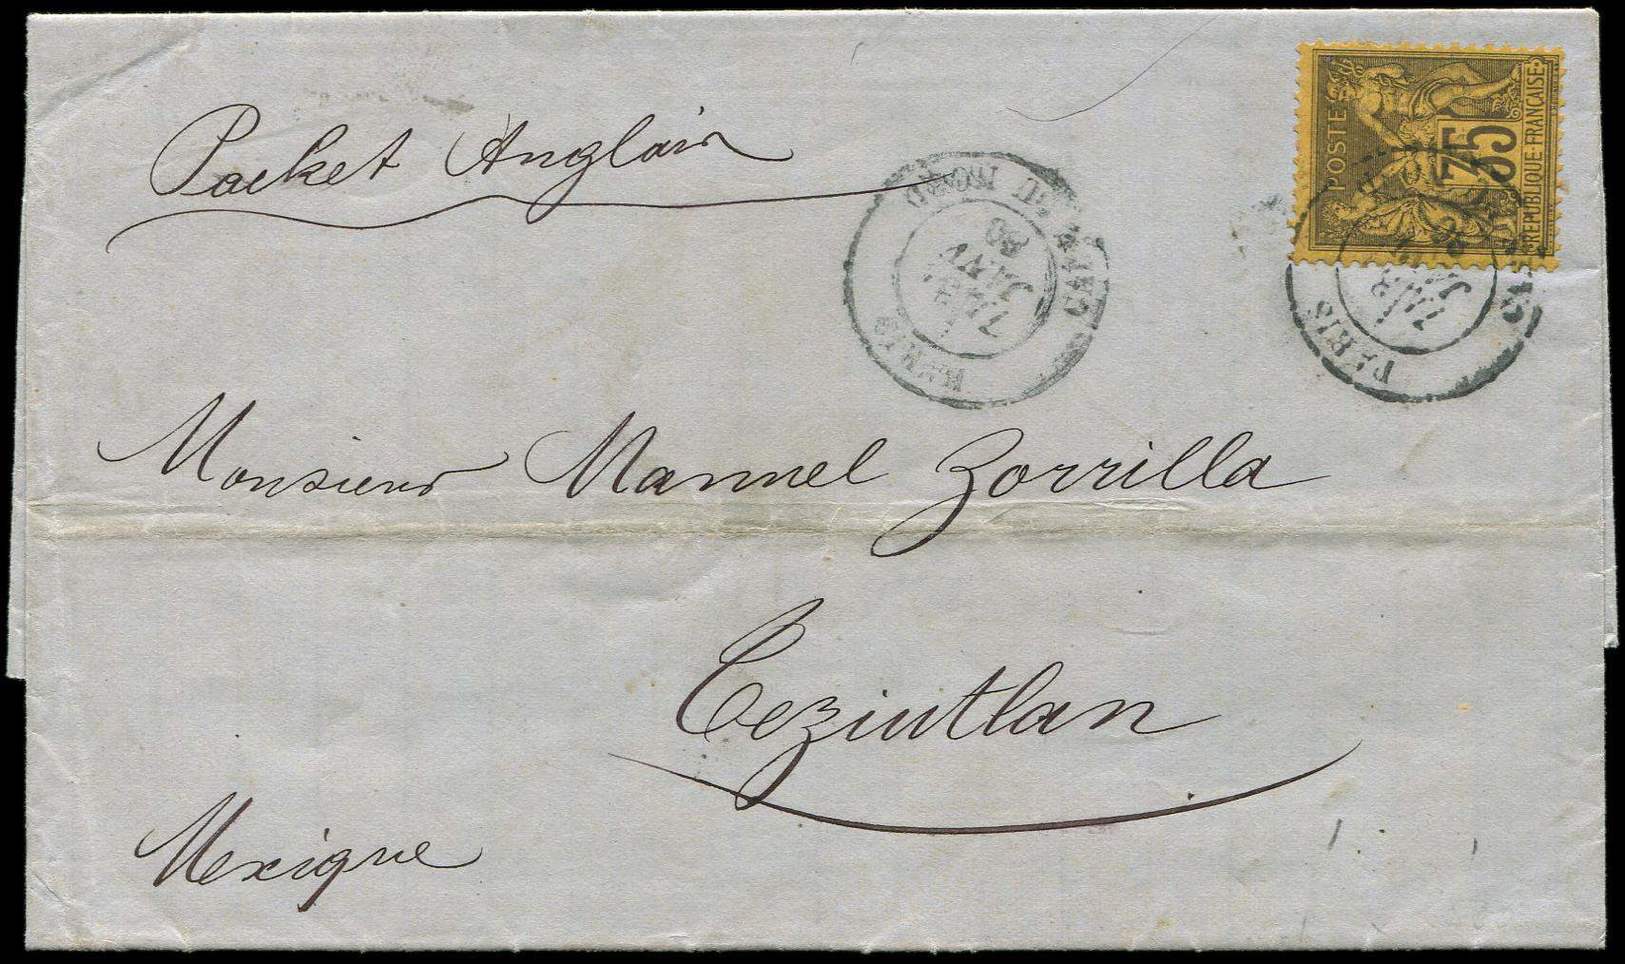 Packet Anglais
POSTES
35
REPUBLIQUE FRANCAISE
PARIS
GARE DU NORD
JANV
80
PARIS
Monsieur Manuel Zorrilla
Teziutlan
Mexique